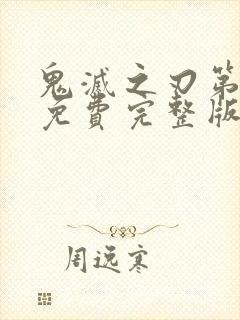 鬼滅之刃第
免費完整版
周逸寒